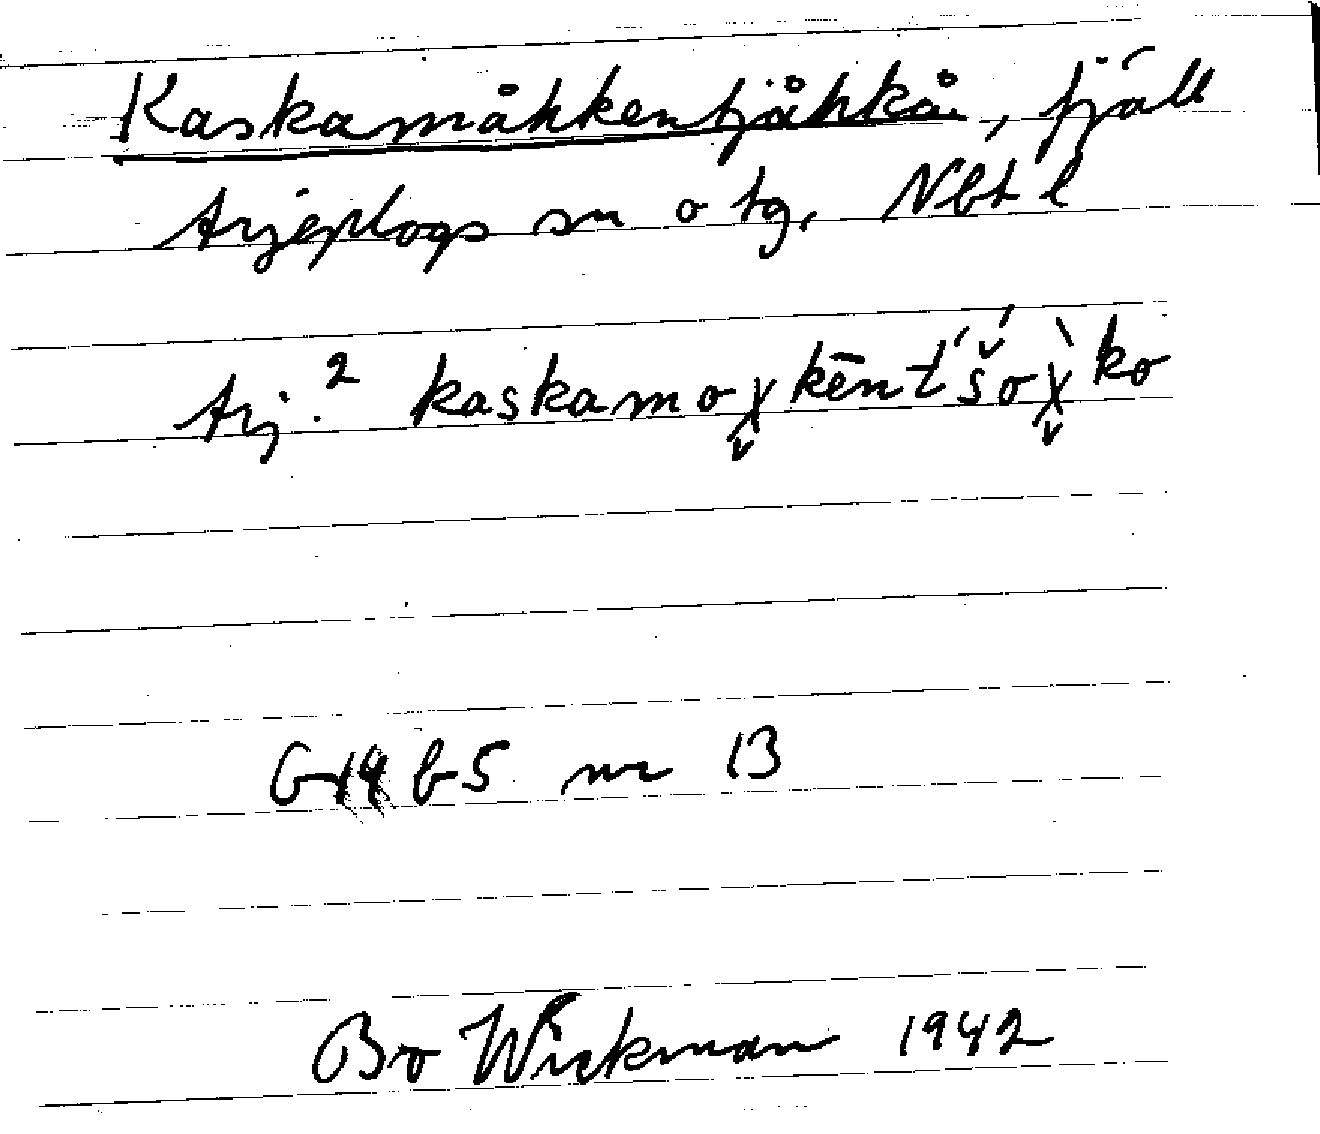 Kaskamåhkentjåhkå, fjäll
Arjeplogs sn o tg, Nbt l
Arj.² kaskamoχ̬kēnt́'š́oχ̬̀ko
G 19 b 5 nr 13
Bo Wickman 1942